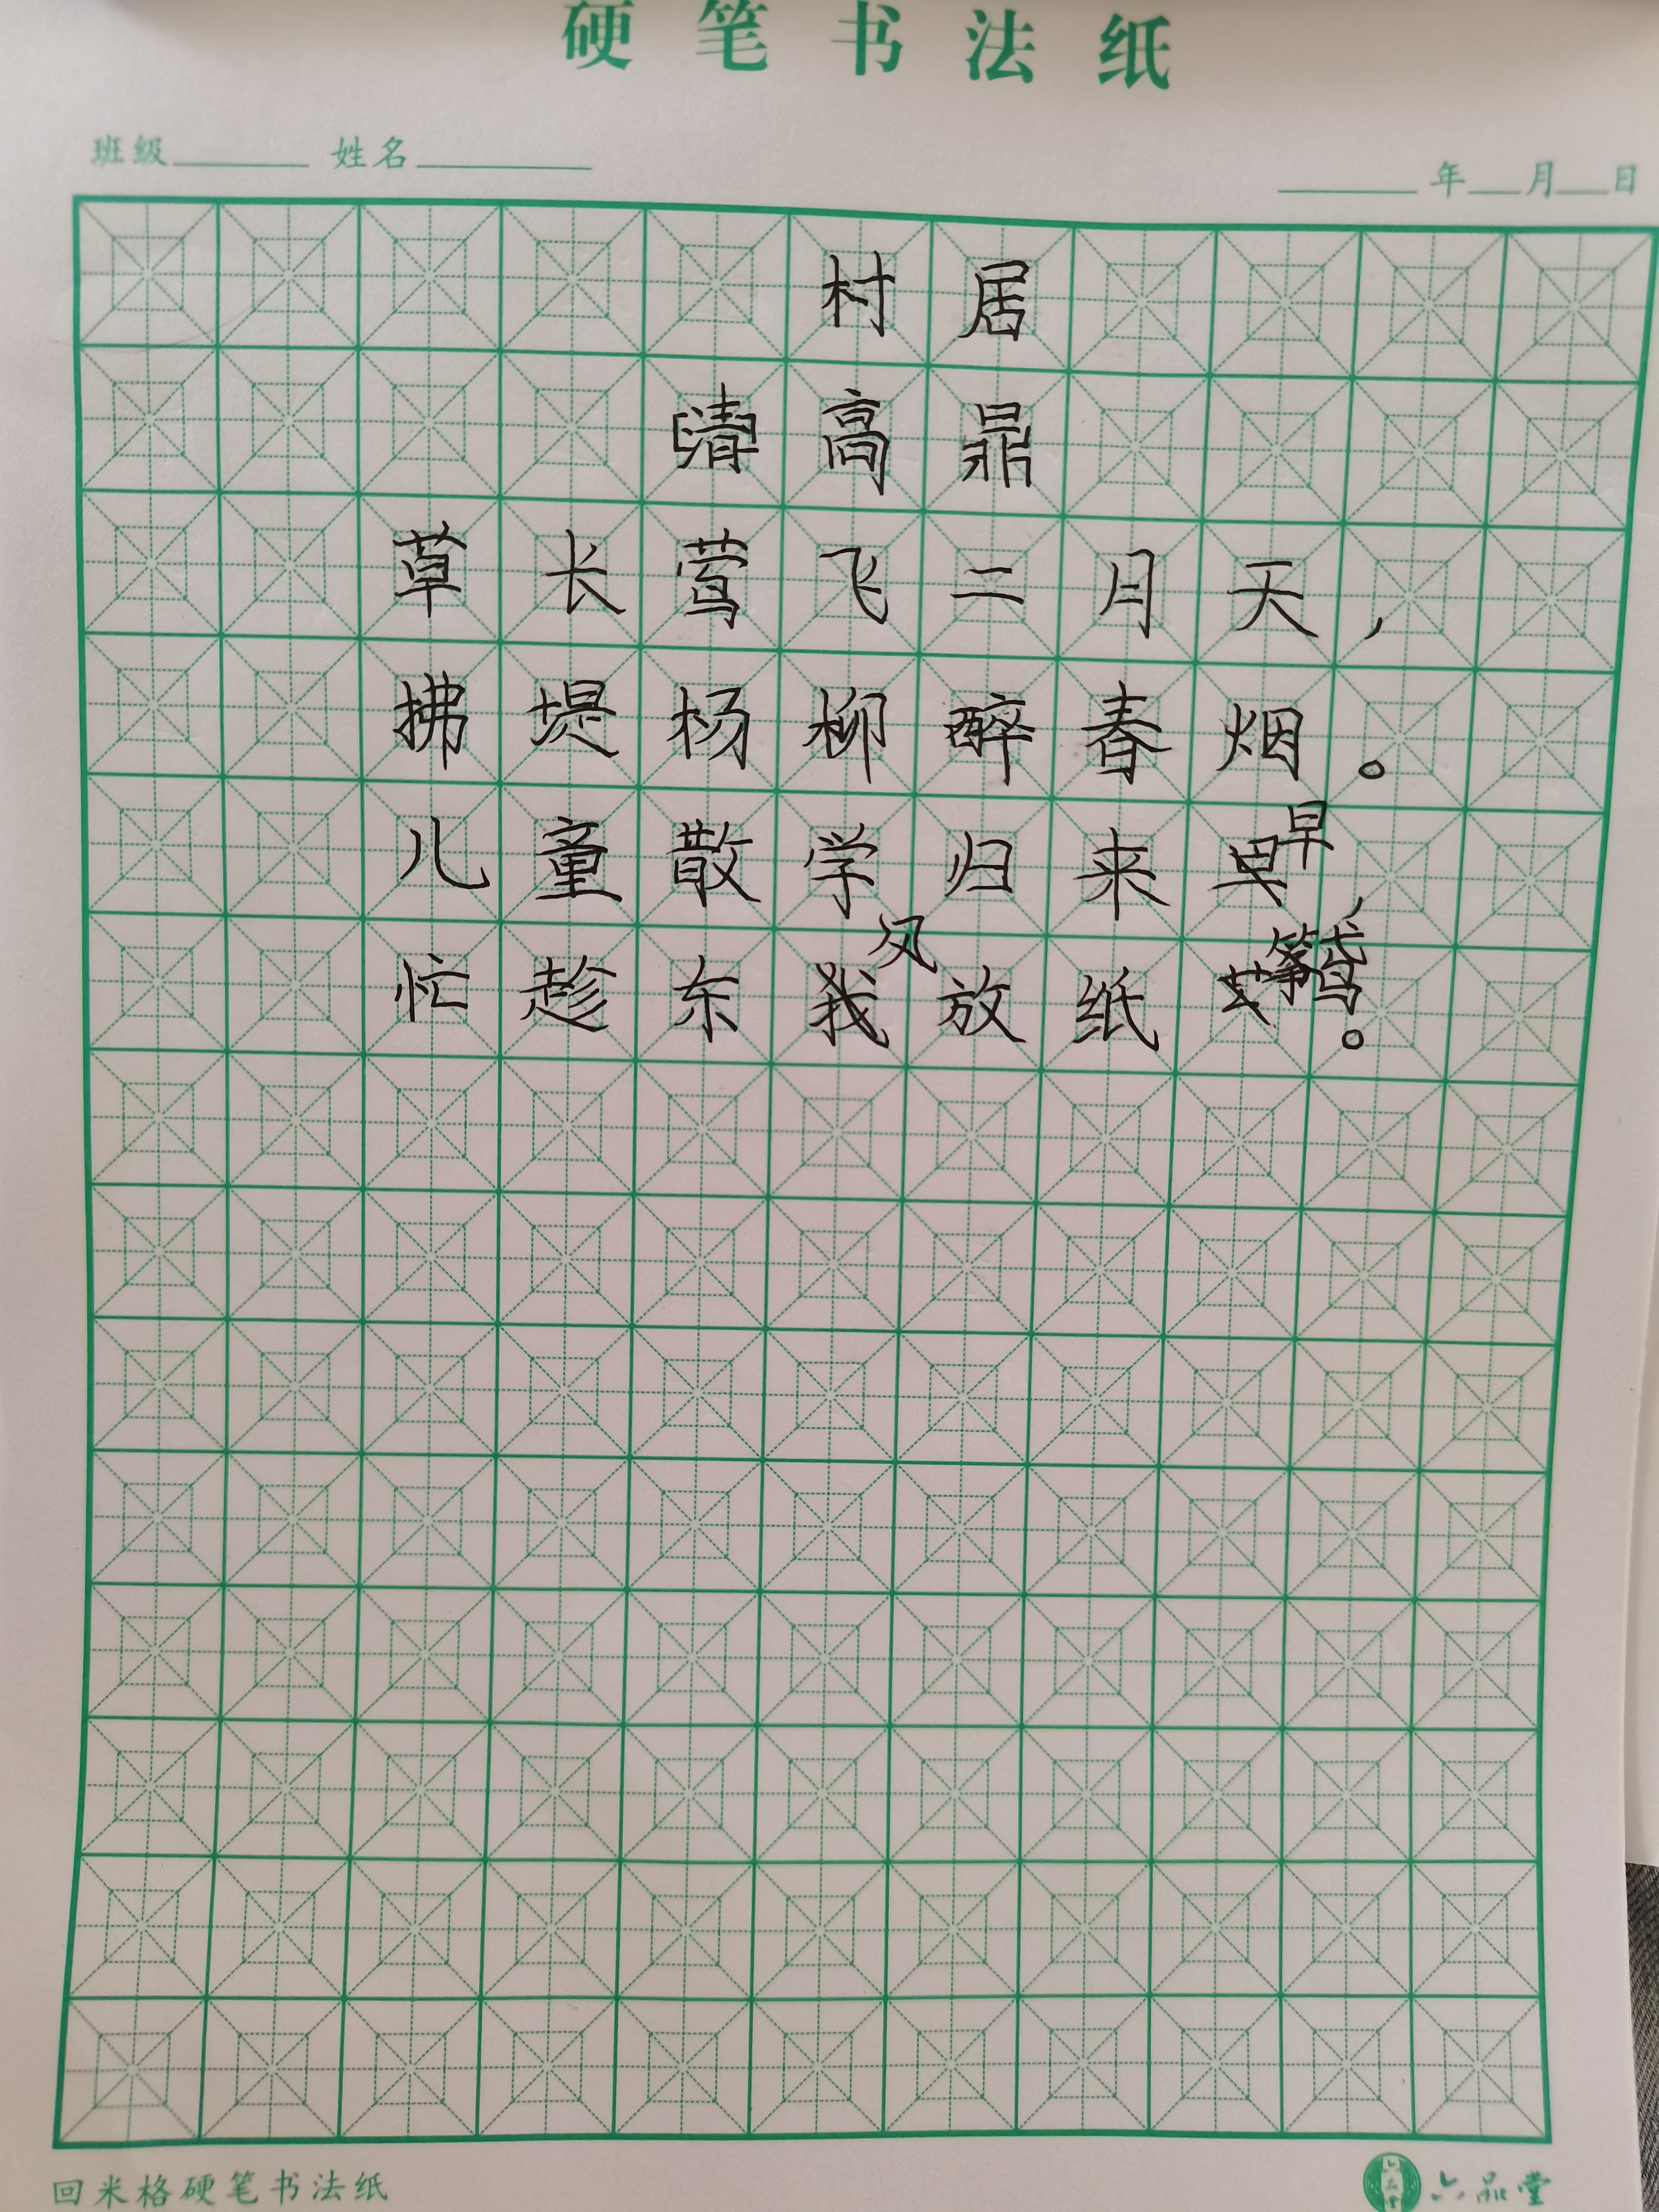 硬笔书法纸
班级 姓名 年 月 日
村居
[清]高鼎
草长莺飞二月天，
拂堤杨柳醉春烟。
儿童散学归来早，
忙趁东风放纸鸢。
回米格硬笔书法纸
六品堂